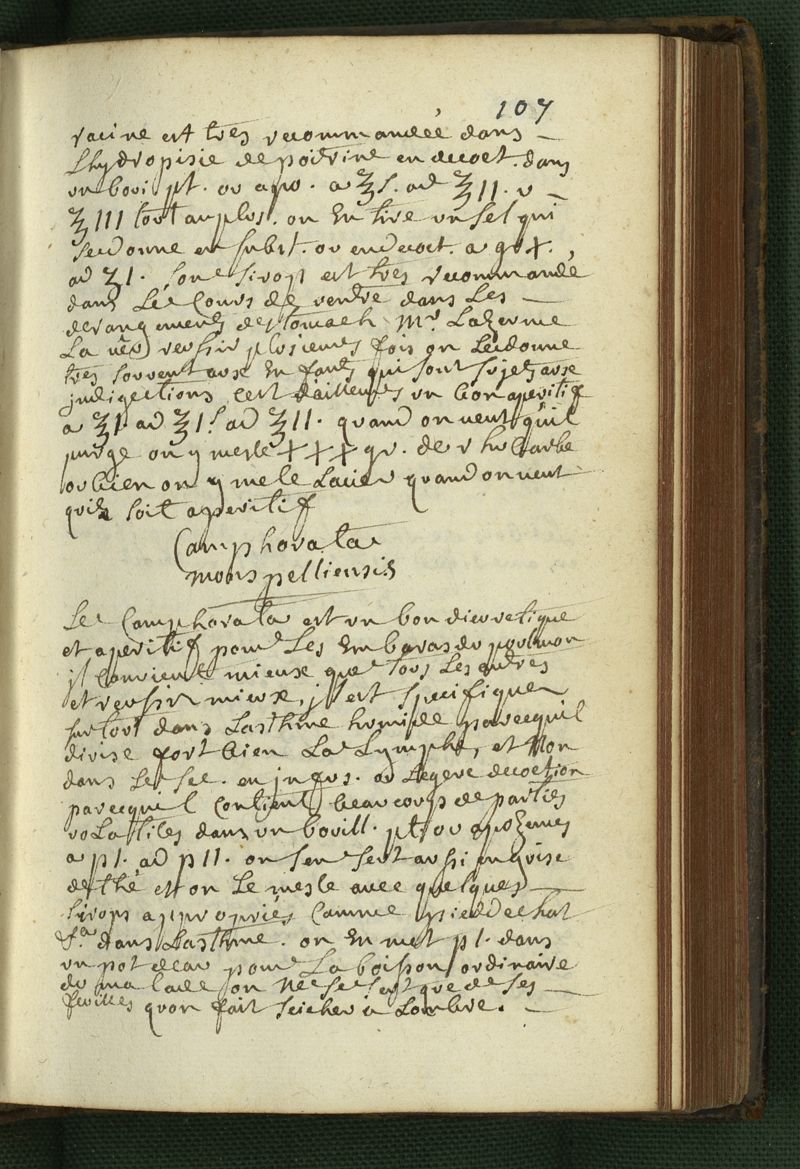 107
racine est tres recommandée dans
Lhydropisie de poitrine en decoct. dans
un boui pt. ou apo. a ℥ s. ad ℥ II. v
℥ III tout au plus. on En tire un sel qui
se donne en subst. ou en decoct. a gr x.
ad ʒ I. Son sirop est tres recommandé
dans Le Cours de ventre dans Les
derangements destomach Mr. Lazerme
La veu reussir plusieurs fois on Le donne
tres souvent aux Enfants qui sont sujets aux
indigestions cest dailleurs un bon aperitif
a ℥ I. ad ℥ I s ad ℥ II. quand on veut quil
purge on y mesle XXX gr. de rhubarbe
ou bien on y mele Lacier quand on veut
quil soit aperitif
Camphorata
monspelliensis
Le Camphorata est un bon diuretique
et aperitif pour Les Embaras du poulmon
il Convient mieux que tous Les autres
et reussir mieux, il est specifique
sur tout dans Lasthme humide parcequil
divise fort bien La Lymphe, et Non
dans Le sec. en infus. ou Legere decoction
parcequil Contient beaucoup de parties
volatiles dans un bouill. pt. ou apozemes
a p I. ad p II. on sen sert aussi en guise
de thé et on Le mesle avec quelques
sirops appropriés Comme pied de chat
dans Lasthme. on En met p I. dans
un pot deau pour La boisson ordinaire
du malade on Ne se sert que de ses
feuilles quon fait seicher a Lombre.